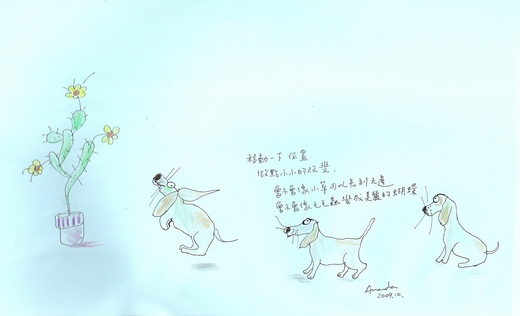 移動一下位置
做點小小的改變.
會不會像小草可以長到天邊
會不會像毛毛蟲變成美麗的蝴蝶
Amanda
2009.10.